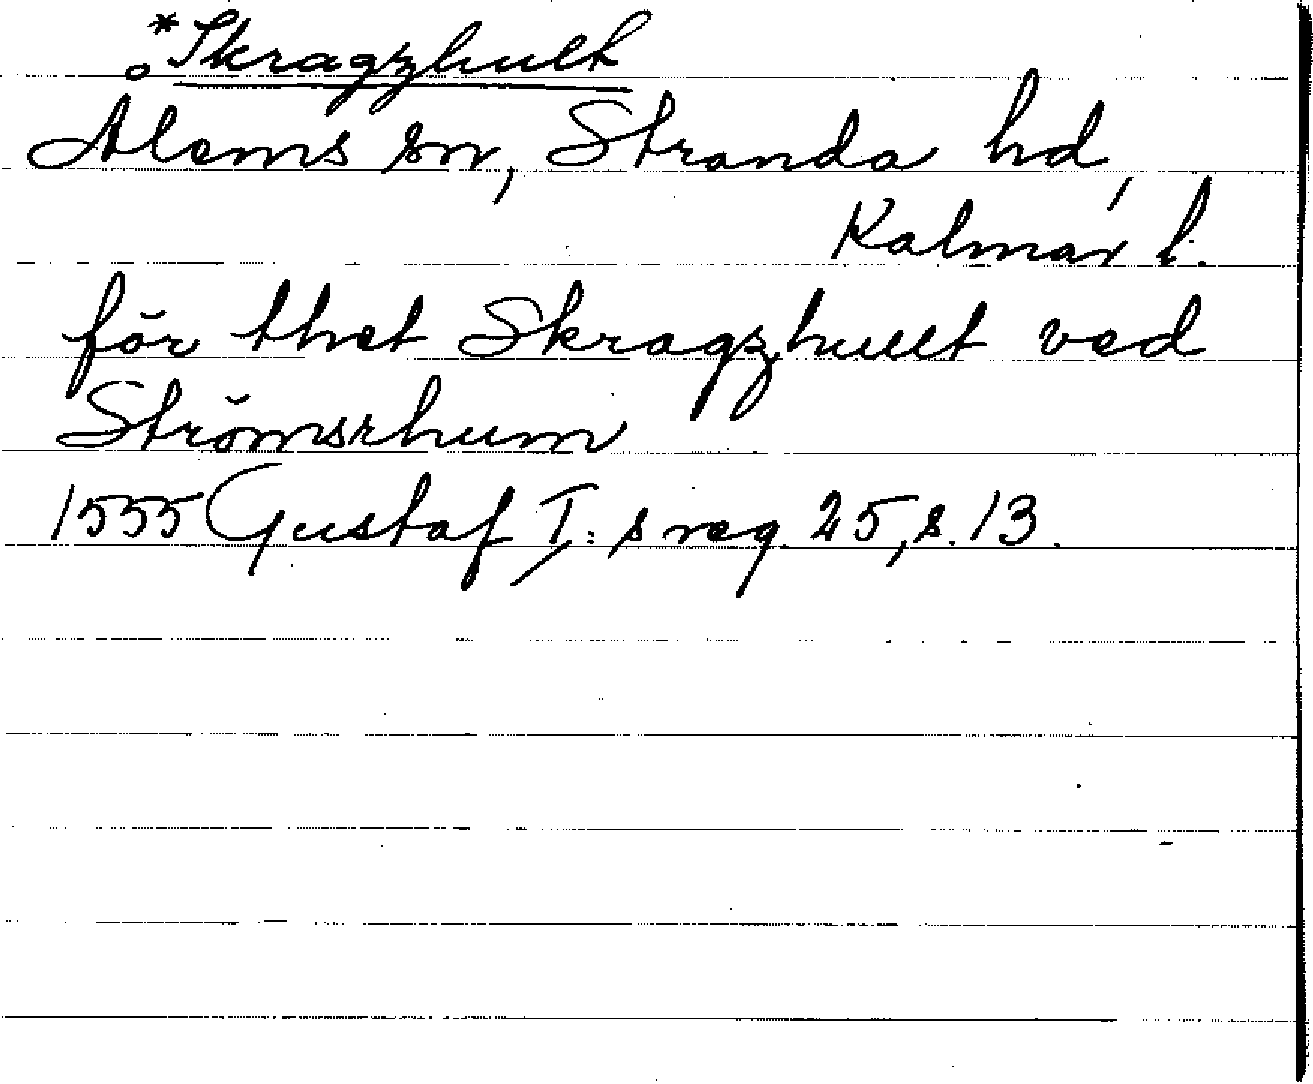 *Skragzhult
Ålems sn, Stranda hd,
Kalmar l.
för thet Skragzhullt ved
Strömsrhum
1555 Gustaf I:s reg. 25, s. 13.